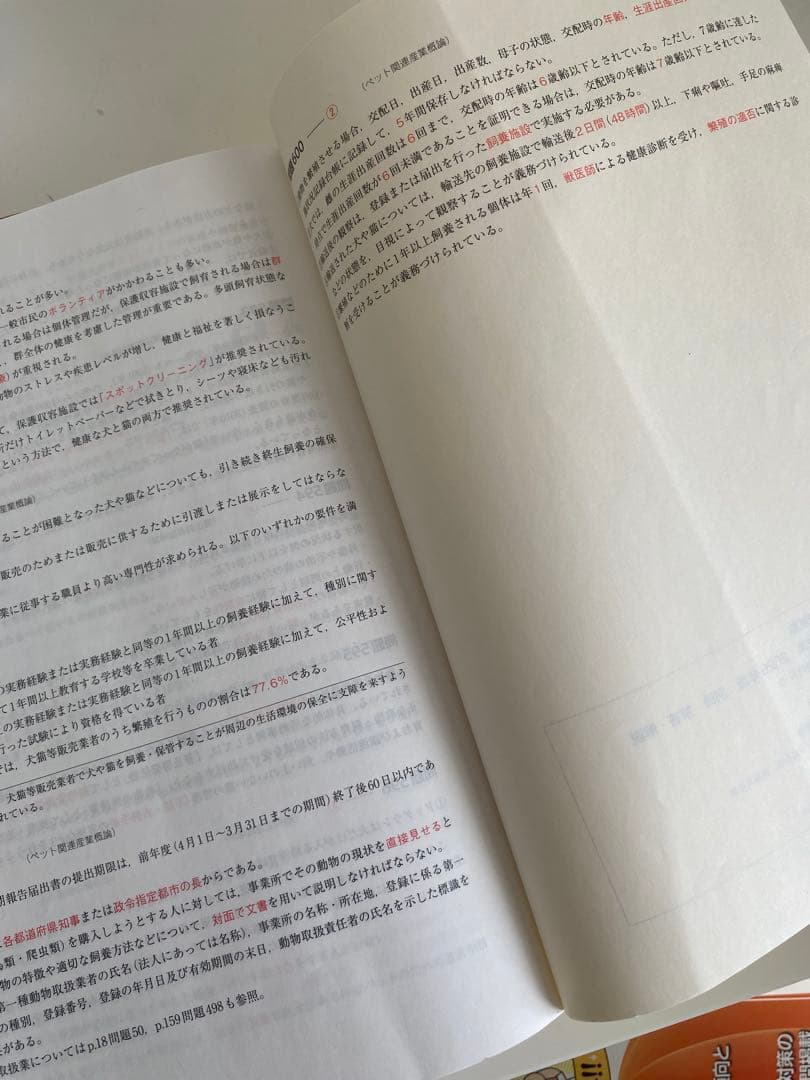 れることが多い。
一般市民のボランティアがかかわることも多い。
れる場合は個体管理だが、保護収容施設で飼育される場合は群
、群全体の健康を考慮した管理が重要である。多頭飼育状態な
)が重視される。
動物のストレスや疾患レベルが増し、健康と福祉を著しく損なうこ
て、保護収容施設では「スポットクリーニング」が推奨されている。
所だけトイレットペーパーなどで拭きとり、シーツや寝床なども汚れ
という方法で、健康な犬と猫の両方で推奨されている。
産業概論)
ることが困難となった犬や猫などについても、引き続き終生飼養の確保
販売のためまたは販売に供するために引渡しまたは展示をしてはならな
業に従事する職員より高い専門性が求められる。以下のいずれかの要件を満
の実務経験または実務経験と同等の1年間以上の飼養経験に加えて、種別に関す
て1年間以上教育する学校等を卒業している者
の実務経験または実務経験と同等の1年間以上の飼養経験に加えて、公平性およ
行った試験により資格を得ている者
では、犬猫等販売業者のうち繁殖を行うものの割合は77.6%である。
、犬猫等販売業者で犬や猫を飼養・保管することが周辺の生活環境の保全に支障を来すよう
れている。
(ペット関連産業概論)
期報告届出書の提出期限は、前年度(4月1日〜3月31日までの期間)終了後60日以内であ
各都道府県知事または政令指定都市の長からである。
鳥類・爬虫類)を購入しようとする人に対しては、事業所でその動物の現状を直接見せると
物の特徴や適切な飼養方法などについて、対面で文書を用いて説明しなければならない。
第一種動物取扱業者の氏名(法人にあっては名称)、事業所の名称・所在地、登録に係る第一
の種別、登録番号、登録の年月日及び有効期間の末日、動物取扱責任者の氏名を示した標識を
がある。
取扱業についてはp.18問題50、p.159問題498も参照。
600 ② (ペット関連産業概論)
を繁殖させる場合、交配日、出産日、出産数、母子の状態、交配時の年齢、生涯出産回
状況記録台帳に記録して、5年間保存しなければならない。
では、雌の生涯出産回数は6回まで、交配時の年齢は6歳齢以下とされている。ただし、7歳齢に達した
点で生涯出産回数が6回未満であることを証明できる場合は、交配時の年齢は7歳齢以下とされている。
輸送後の観察は、登録または届出を行った飼養施設で実施する必要がある。
輸送された犬や猫については、輸送先の飼養施設で輸送後2日間(48時間)以上、下痢や嘔吐、手足の麻痺
などの状態を、目視によって観察することが義務づけられている。
繁殖などのために1年以上飼養される個体は年1回、獣医師による健康診断を受け、繁殖の適否に関する診
断を受けることが義務づけられている。
問題594
問題595
向と
対策の